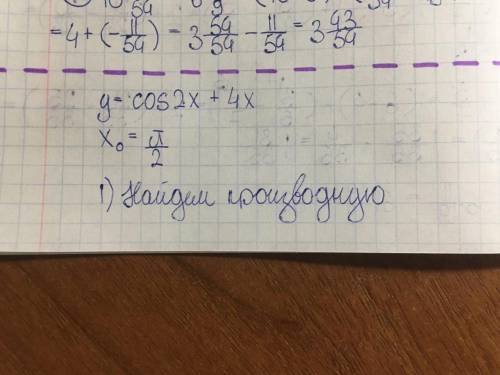 = 4 + (- 11/54) = 3 54/54 - 11/54 = 3 43/54
y = cos2x + 4x
x₀ = π/2
1) Найдем производную